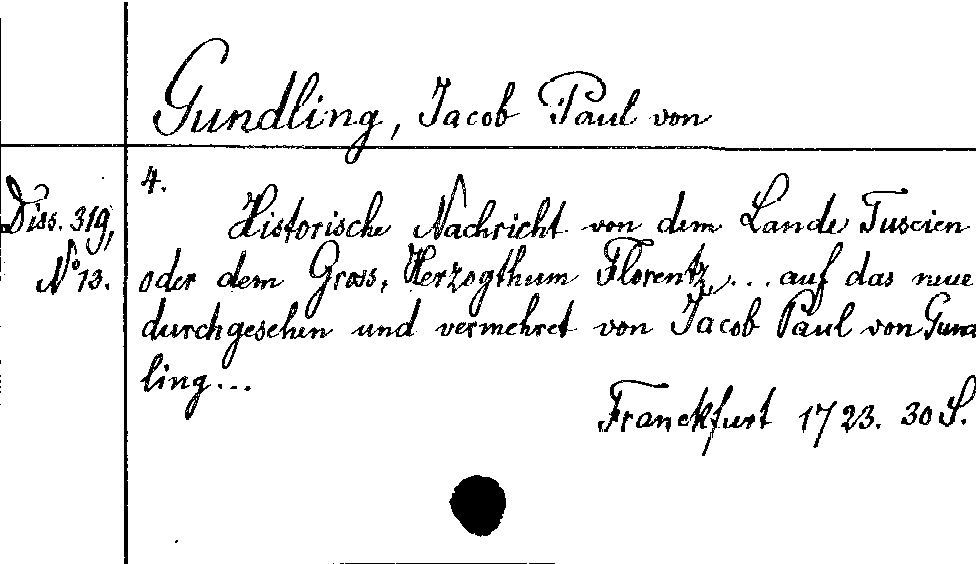 Gundling, Jacob Paul von
4.
Diss. 319,
No 13.
Historische Nachricht von dem Lande Tuscien
oder dem Gross, Herzogthum Florentz,... auf das neue
durchgesehen und vermehret von Jacob Paul von Gund
ling...
Franckfurt 1723. 30 S.